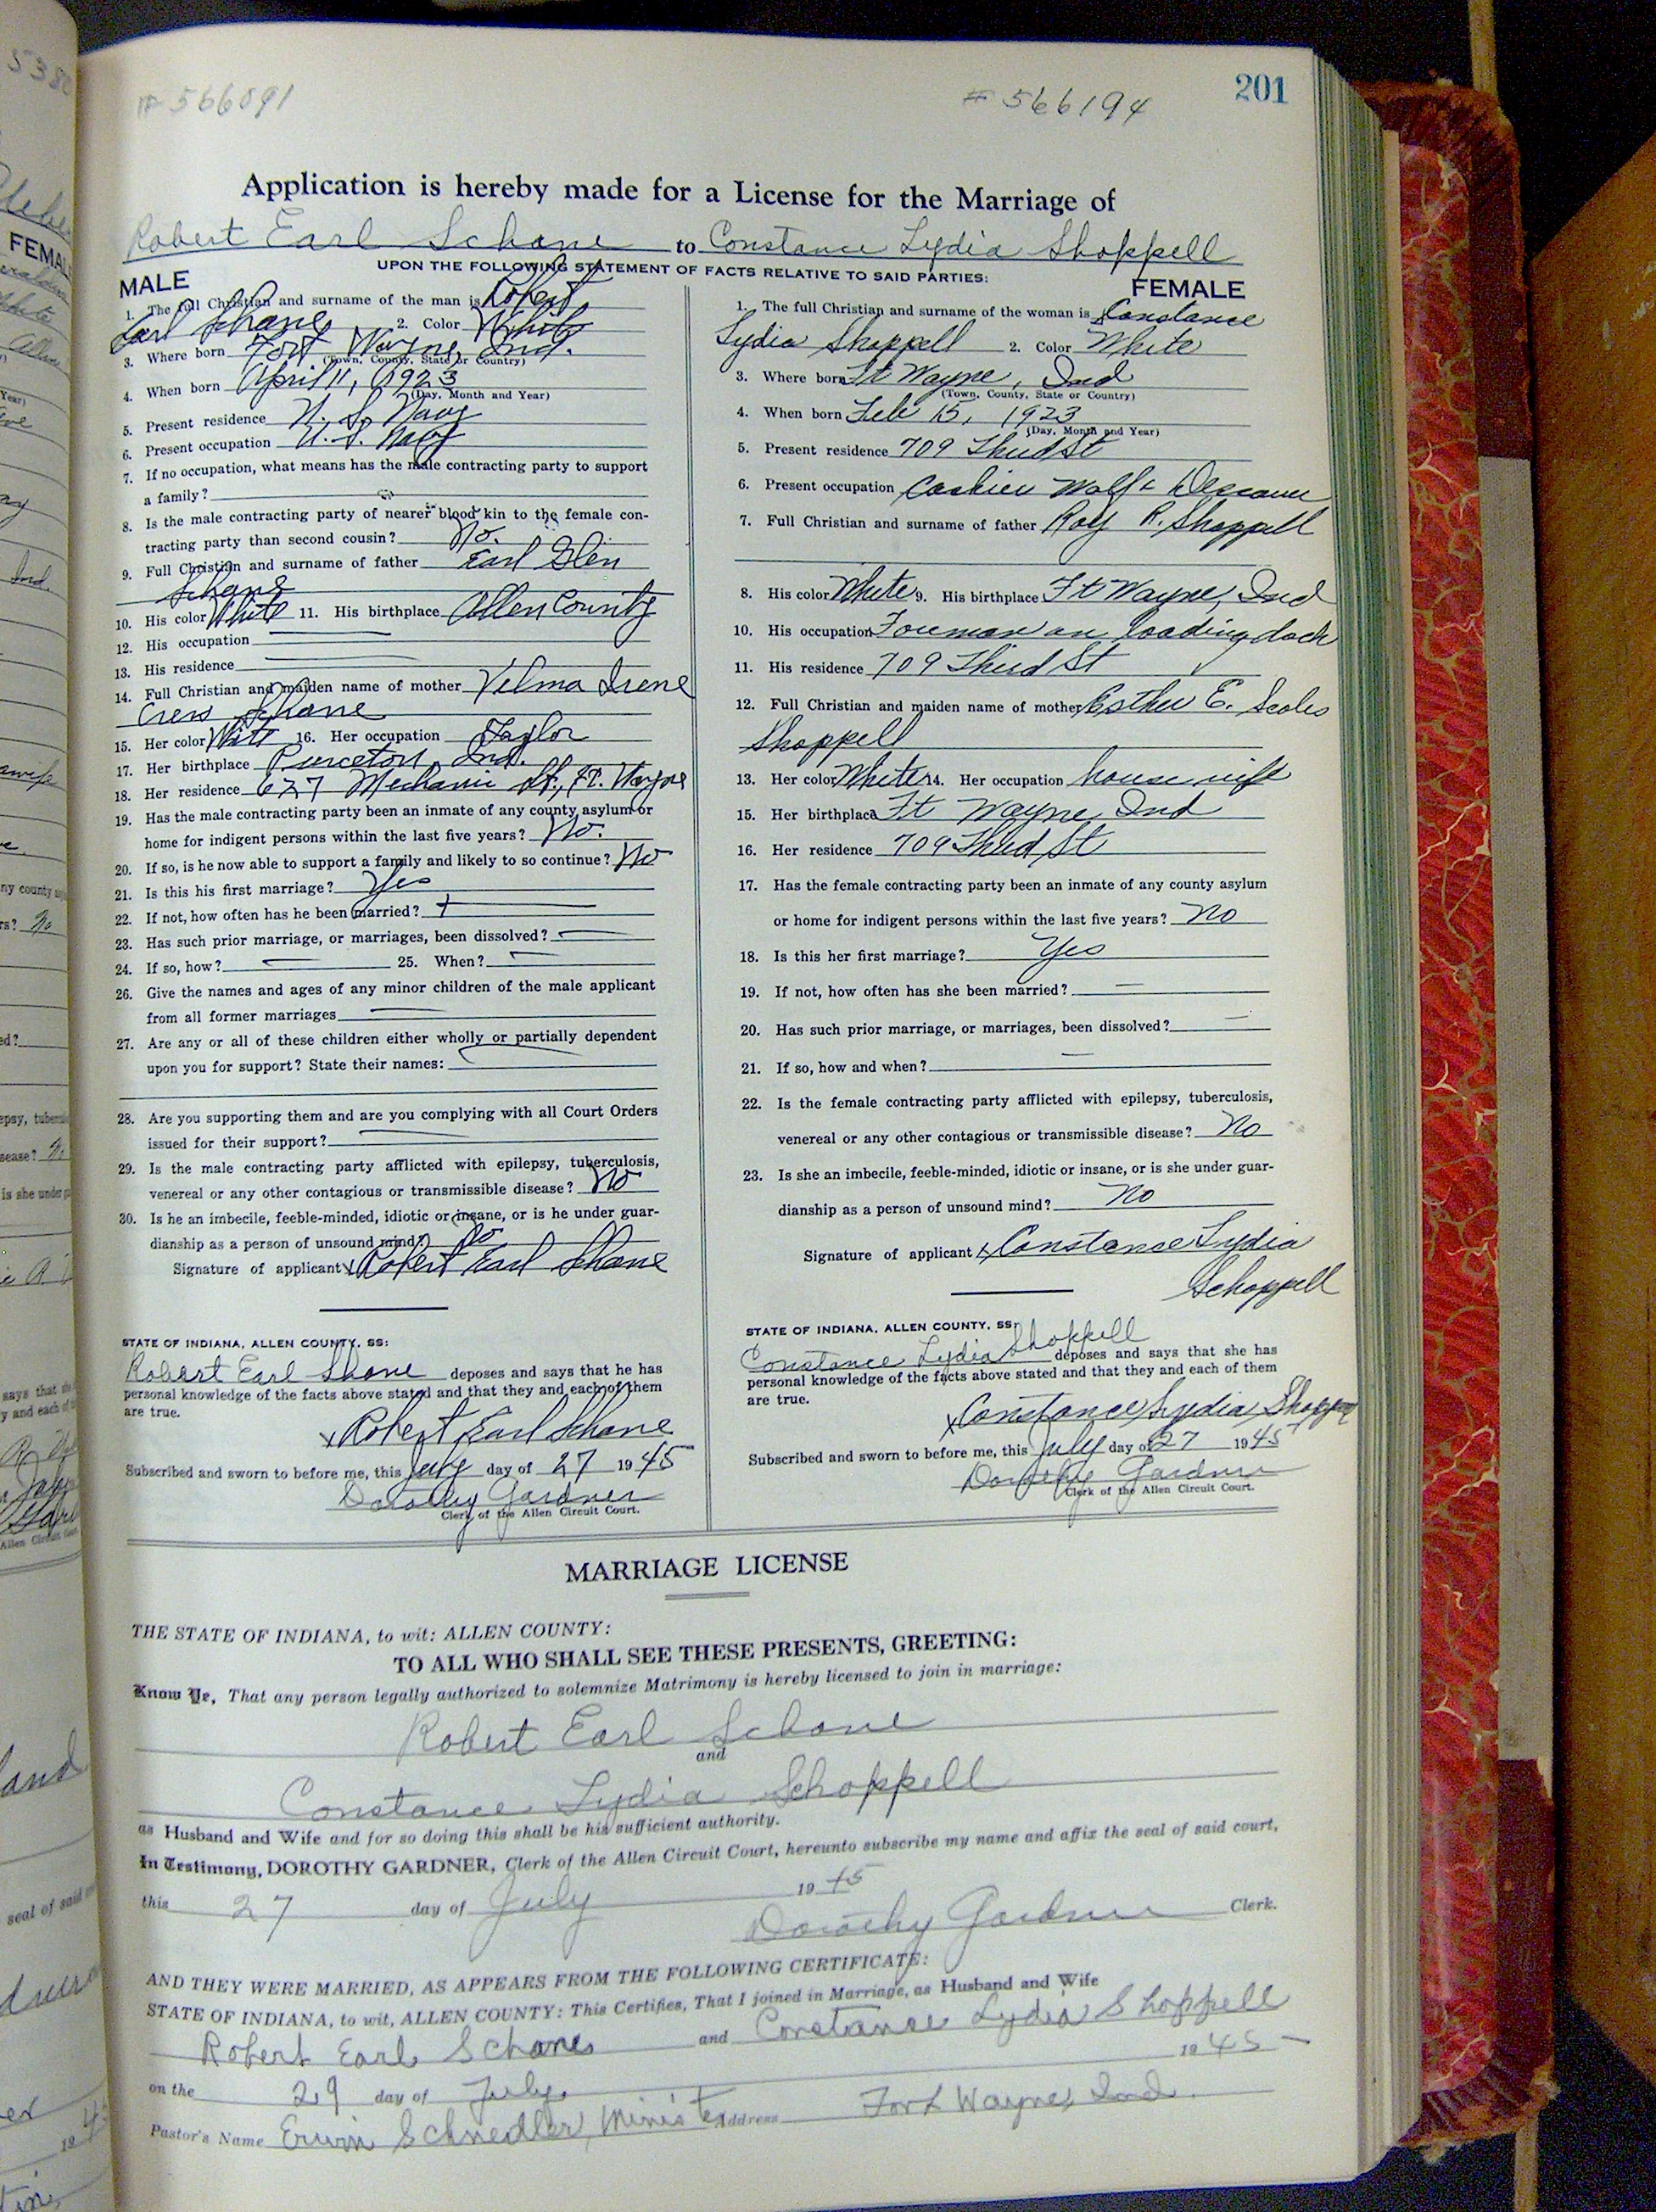 # 566091
# 566194
201
Application is hereby made for a License for the Marriage of
Robert Earl Schane to Constance Lydia Shoppell
UPON THE FOLLOWING STATEMENT OF FACTS RELATIVE TO SAID PARTIES:
MALE
1. The full Christian and surname of the man is Robert
Earl Schane 2. Color White
3. Where born Fort Wayne, Ind.
(Town, County, State or Country)
4. When born April 11, 1923
(Day, Month and Year)
5. Present residence U. S. Navy
6. Present occupation U. S. Navy
7. If no occupation, what means has the male contracting party to support
a family?
8. Is the male contracting party of nearer blood kin to the female con-
tracting party than second cousin? No.
9. Full Christian and surname of father Earl Glen
Schane
10. His color White 11. His birthplace Allen County
12. His occupation —
13. His residence —
14. Full Christian and maiden name of mother Velma Irene
Crews Schane
15. Her color White 16. Her occupation Taylor
17. Her birthplace Pierceton, Ind.
18. Her residence 627 Mechanic St., Ft. Wayne
19. Has the male contracting party been an inmate of any county asylum or
home for indigent persons within the last five years? No.
20. If so, is he now able to support a family and likely to so continue? No
21. Is this his first marriage? Yes
22. If not, how often has he been married? —
23. Has such prior marriage, or marriages, been dissolved? —
24. If so, how? — 25. When? —
26. Give the names and ages of any minor children of the male applicant
from all former marriages —
27. Are any or all of these children either wholly or partially dependent
upon you for support? State their names:
28. Are you supporting them and are you complying with all Court Orders
issued for their support? —
29. Is the male contracting party afflicted with epilepsy, tuberculosis,
venereal or any other contagious or transmissible disease? No
30. Is he an imbecile, feeble-minded, idiotic or insane, or is he under guar-
dianship as a person of unsound mind? No
Signature of applicant x Robert Earl Schane
STATE OF INDIANA, ALLEN COUNTY, SS:
Robert Earl Shane deposes and says that he has
personal knowledge of the facts above stated and that they and each of them
are true.
x Robert Earl Schane
Subscribed and sworn to before me, this July day of 27 1945
Dorothy Gardner
Clerk of the Allen Circuit Court.
FEMALE
1. The full Christian and surname of the woman is Constance
Lydia Shoppell 2. Color White
3. Where born Ft Wayne, Ind
(Town, County, State or Country)
4. When born Feb 15, 1923
(Day, Month and Year)
5. Present residence 709 Third St
6. Present occupation Cashier Wolf & Dessauer
7. Full Christian and surname of father Roy R. Shoppell
8. His color White 9. His birthplace Ft Wayne, Ind
10. His occupation Foreman on loading dock
11. His residence 709 Third St
12. Full Christian and maiden name of mother Esther E. Scoles
Shoppell
13. Her color White 14. Her occupation house wife
15. Her birthplace Ft Wayne Ind
16. Her residence 709 Third St
17. Has the female contracting party been an inmate of any county asylum
or home for indigent persons within the last five years? No
18. Is this her first marriage? Yes
19. If not, how often has she been married? —
20. Has such prior marriage, or marriages, been dissolved? —
21. If so, how and when? —
22. Is the female contracting party afflicted with epilepsy, tuberculosis,
venereal or any other contagious or transmissible disease? No
23. Is she an imbecile, feeble-minded, idiotic or insane, or is she under guar-
dianship as a person of unsound mind? No
Signature of applicant x Constance Lydia
Schoppell
STATE OF INDIANA, ALLEN COUNTY, SS:
Constance Lydia Shoppell deposes and says that she has
personal knowledge of the facts above stated and that they and each of them
are true.
x Constance Lydia Shoppell
Subscribed and sworn to before me, this July day of 27 1945
Dorothy Gardner
Clerk of the Allen Circuit Court.
MARRIAGE LICENSE
THE STATE OF INDIANA, to wit: ALLEN COUNTY:
TO ALL WHO SHALL SEE THESE PRESENTS, GREETING:
Know Ye, That any person legally authorized to solemnize Matrimony is hereby licensed to join in marriage:
Robert Earl Schane
and
Constance Lydia Schoppell
as Husband and Wife and for so doing this shall be his sufficient authority.
In Testimony, DOROTHY GARDNER, Clerk of the Allen Circuit Court, hereunto subscribe my name and affix the seal of said court,
this 27 day of July 1945
Dorothy Gardner Clerk.
AND THEY WERE MARRIED, AS APPEARS FROM THE FOLLOWING CERTIFICATE:
STATE OF INDIANA, to wit, ALLEN COUNTY: This Certifies, That I joined in Marriage, as Husband and Wife
Robert Earl Schane and Constance Lydia Shoppell
on the 29 day of July 1945
Pastor's Name Erwin Schnedler, Minister Address Fort Wayne, Ind.